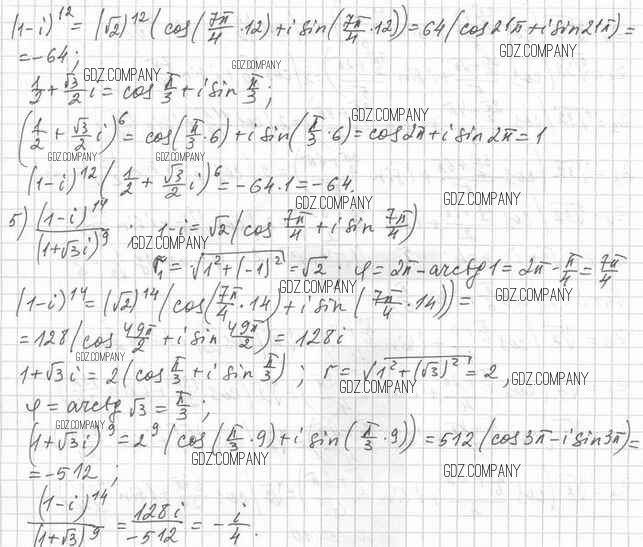 (1-i)^12 = (√2)^12 (cos(7π/4 · 12) + i sin(7π/4 · 12)) = 64(cos 21π + i sin 21π) =
= -64;
GDZ.COMPANY
1/2 + √3/2 i = cos π/3 + i sin π/3;
GDZ.COMPANY
GDZ.COMPANY
(1/2 + √3/2 i)^6 = cos(π/3 · 6) + i sin(π/3 · 6) = cos 2π + i sin 2π = 1
GDZ.COMPANY
GDZ.COMPANY
GDZ.COMPANY
(1-i)^12 (1/2 + √3/2 i)^6 = -64·1 = -64.
GDZ.COMPANY
GDZ.COMPANY
5) (1-i)^14 / (1+√3i)^9 ; 1-i = √2(cos 7π/4 + i sin 7π/4)
GDZ.COMPANY
r₁ = √(1²+(-1)²) = √2 · φ = 2π - arctg 1 = 2π - π/4 = 7π/4
GDZ.COMPANY
GDZ.COMPANY
(1-i)^14 = (√2)^14 (cos(7π/4 · 14) + i sin(7π/4 · 14)) =
= 128(cos 49π/2 + i sin 49π/2) = 128i
GDZ.COMPANY
1+√3i = 2(cos π/3 + i sin π/3) ; r = √(1²+(√3)²) = 2 ,
GDZ.COMPANY
GDZ.COMPANY
φ = arctg √3 = π/3 ;
GDZ.COMPANY
(1+√3i)^9 = 2^9 (cos(π/3 · 9) + i sin(π/3 · 9)) = 512(cos 3π - i sin 3π) =
GDZ.COMPANY
GDZ.COMPANY
= -512 ;
(1-i)^14 / (1+√3)^9 = 128i / -512 = - i/4 .